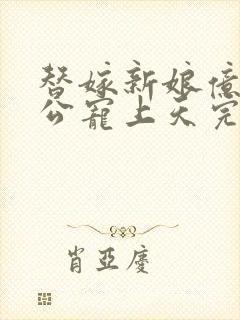 替嫁新娘億
公寵上天完
肖亞慶